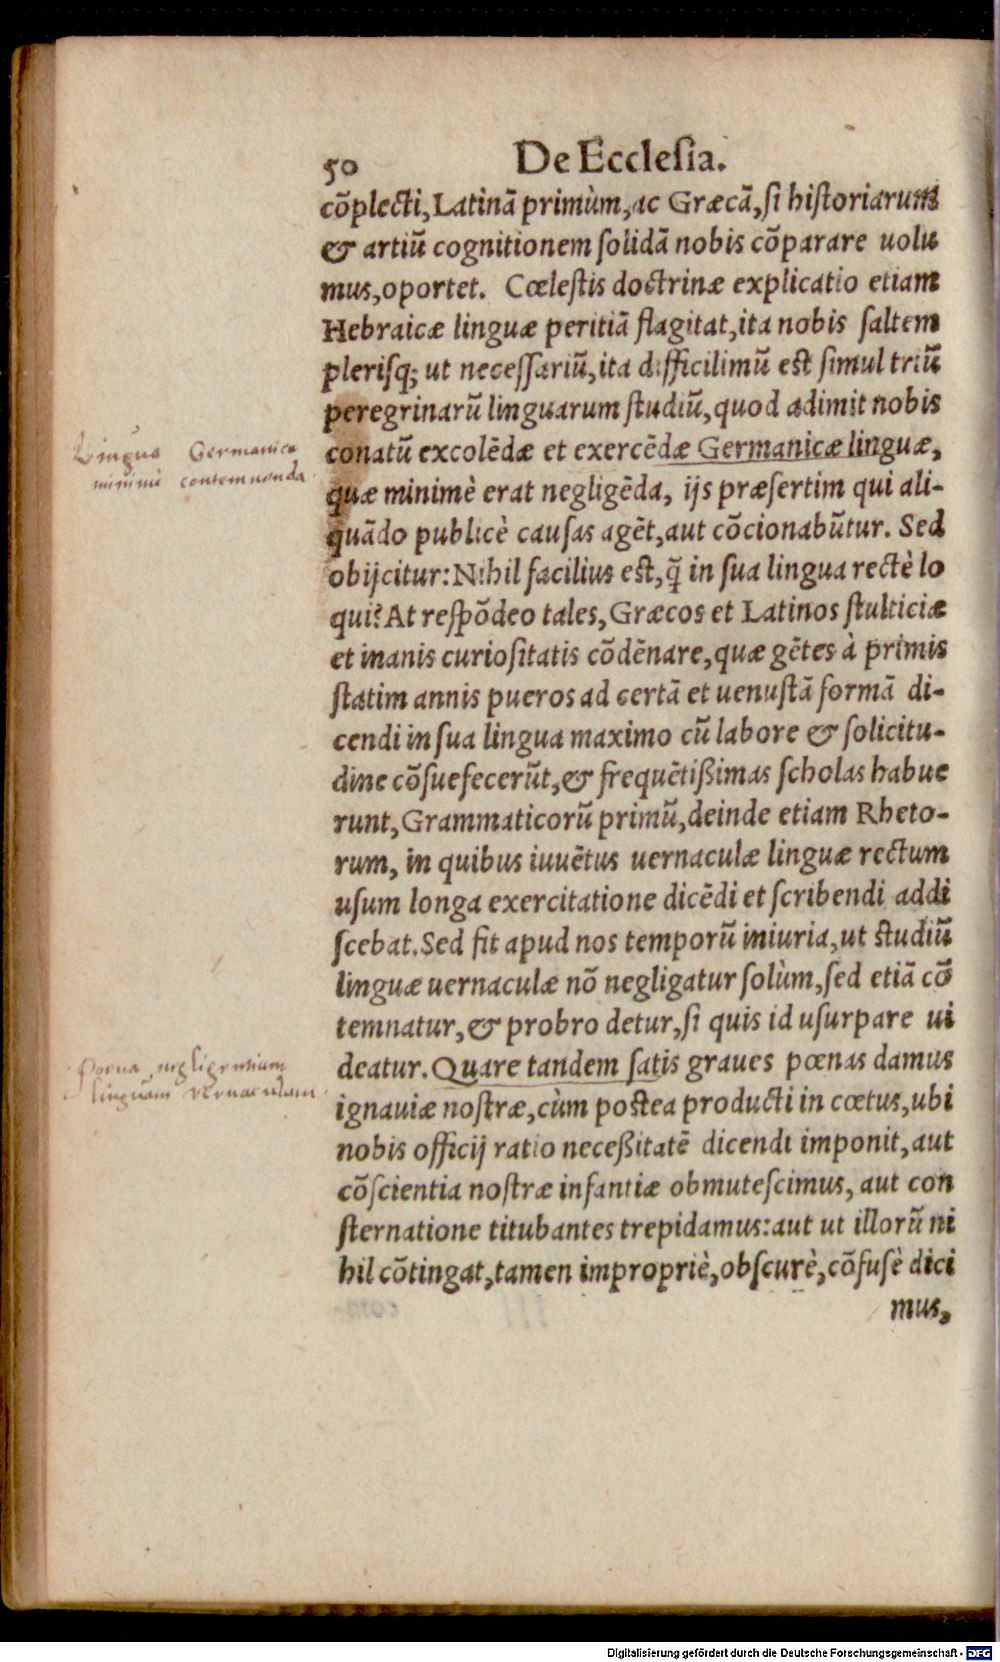 50 De Ecclesia.
cõplecti, Latinã primùm, ac Græcã, ſi hiſtoriarum
& artiũ cognitionem ſolidã nobis cõparare uolu
mus, oportet. Cœleſtis doctrinæ explicatio etiam
Hebraicæ linguæ peritiã flagitat, ita nobis ſaltem
pleriſq; ut neceſſariũ, ita difficilimũ eſt ſimul triũ
peregrinarũ linguarum ſtudiũ, quod adimit nobis
Lingua Germanica
conatũ excolẽdæ et exercẽdæ Germanicæ linguæ,
minimè contemnenda
quæ minimè erat negligẽda, ijs præſertim qui ali-
quãdo publicè cauſas agẽt, aut cõcionabũtur. Sed
obijcitur: Nihil facilius eſt, q̃ in ſua lingua rectè lo
qui? At reſpõdeo tales, Græcos et Latinos ſtulticiæ
et inanis curioſitatis cõdẽnare, quæ gẽtes à primis
ſtatim annis pueros ad certã et uenuſtã formã di-
cendi in ſua lingua maximo cũ labore & ſolicitu-
dine cõſuefecerũt, & frequẽtißimas ſcholas habue
runt, Grammaticorũ primũ, deinde etiam Rheto-
rum, in quibus iuuẽtus uernaculæ linguæ rectum
uſum longa exercitatione dicẽdi et ſcribendi addi
ſcebat. Sed fit apud nos temporũ iniuria, ut ſtudiũ
linguæ uernaculæ nõ negligatur ſolùm, ſed etiã cõ
temnatur, & probro detur, ſi quis id uſurpare ui
Poena negligentium
deatur. Quare tandem ſatis graues pœnas damus
linguam vernaculam
ignauiæ noſtræ, cùm poſtea producti in cœtus, ubi
nobis officij ratio neceßitatẽ dicendi imponit, aut
cõſcientia noſtræ infantiæ obmuteſcimus, aut con
ſternatione titubantes trepidamus: aut ut illorũ ni
hil cõtingat, tamen impropriè, obſcurè, cõfuſè dici
mus,
Digitalisierung gefördert durch die Deutsche Forschungsgemeinschaft - DFG